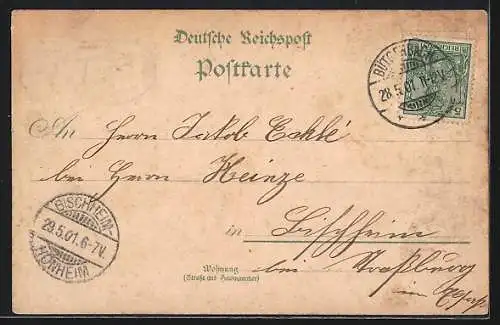 Deutsche Reichspost
Postkarte
BÜTGENBACH
28.5.01. 11-12V.
An Herrn Jakob
bei Herrn Heinze
in Bischheim
bei Straßburg
im Elsaß
Wohnung
(Straße und Hausnummer)
BISCHHEIM-
29.5.01.6-7V.
HÖNHEIM